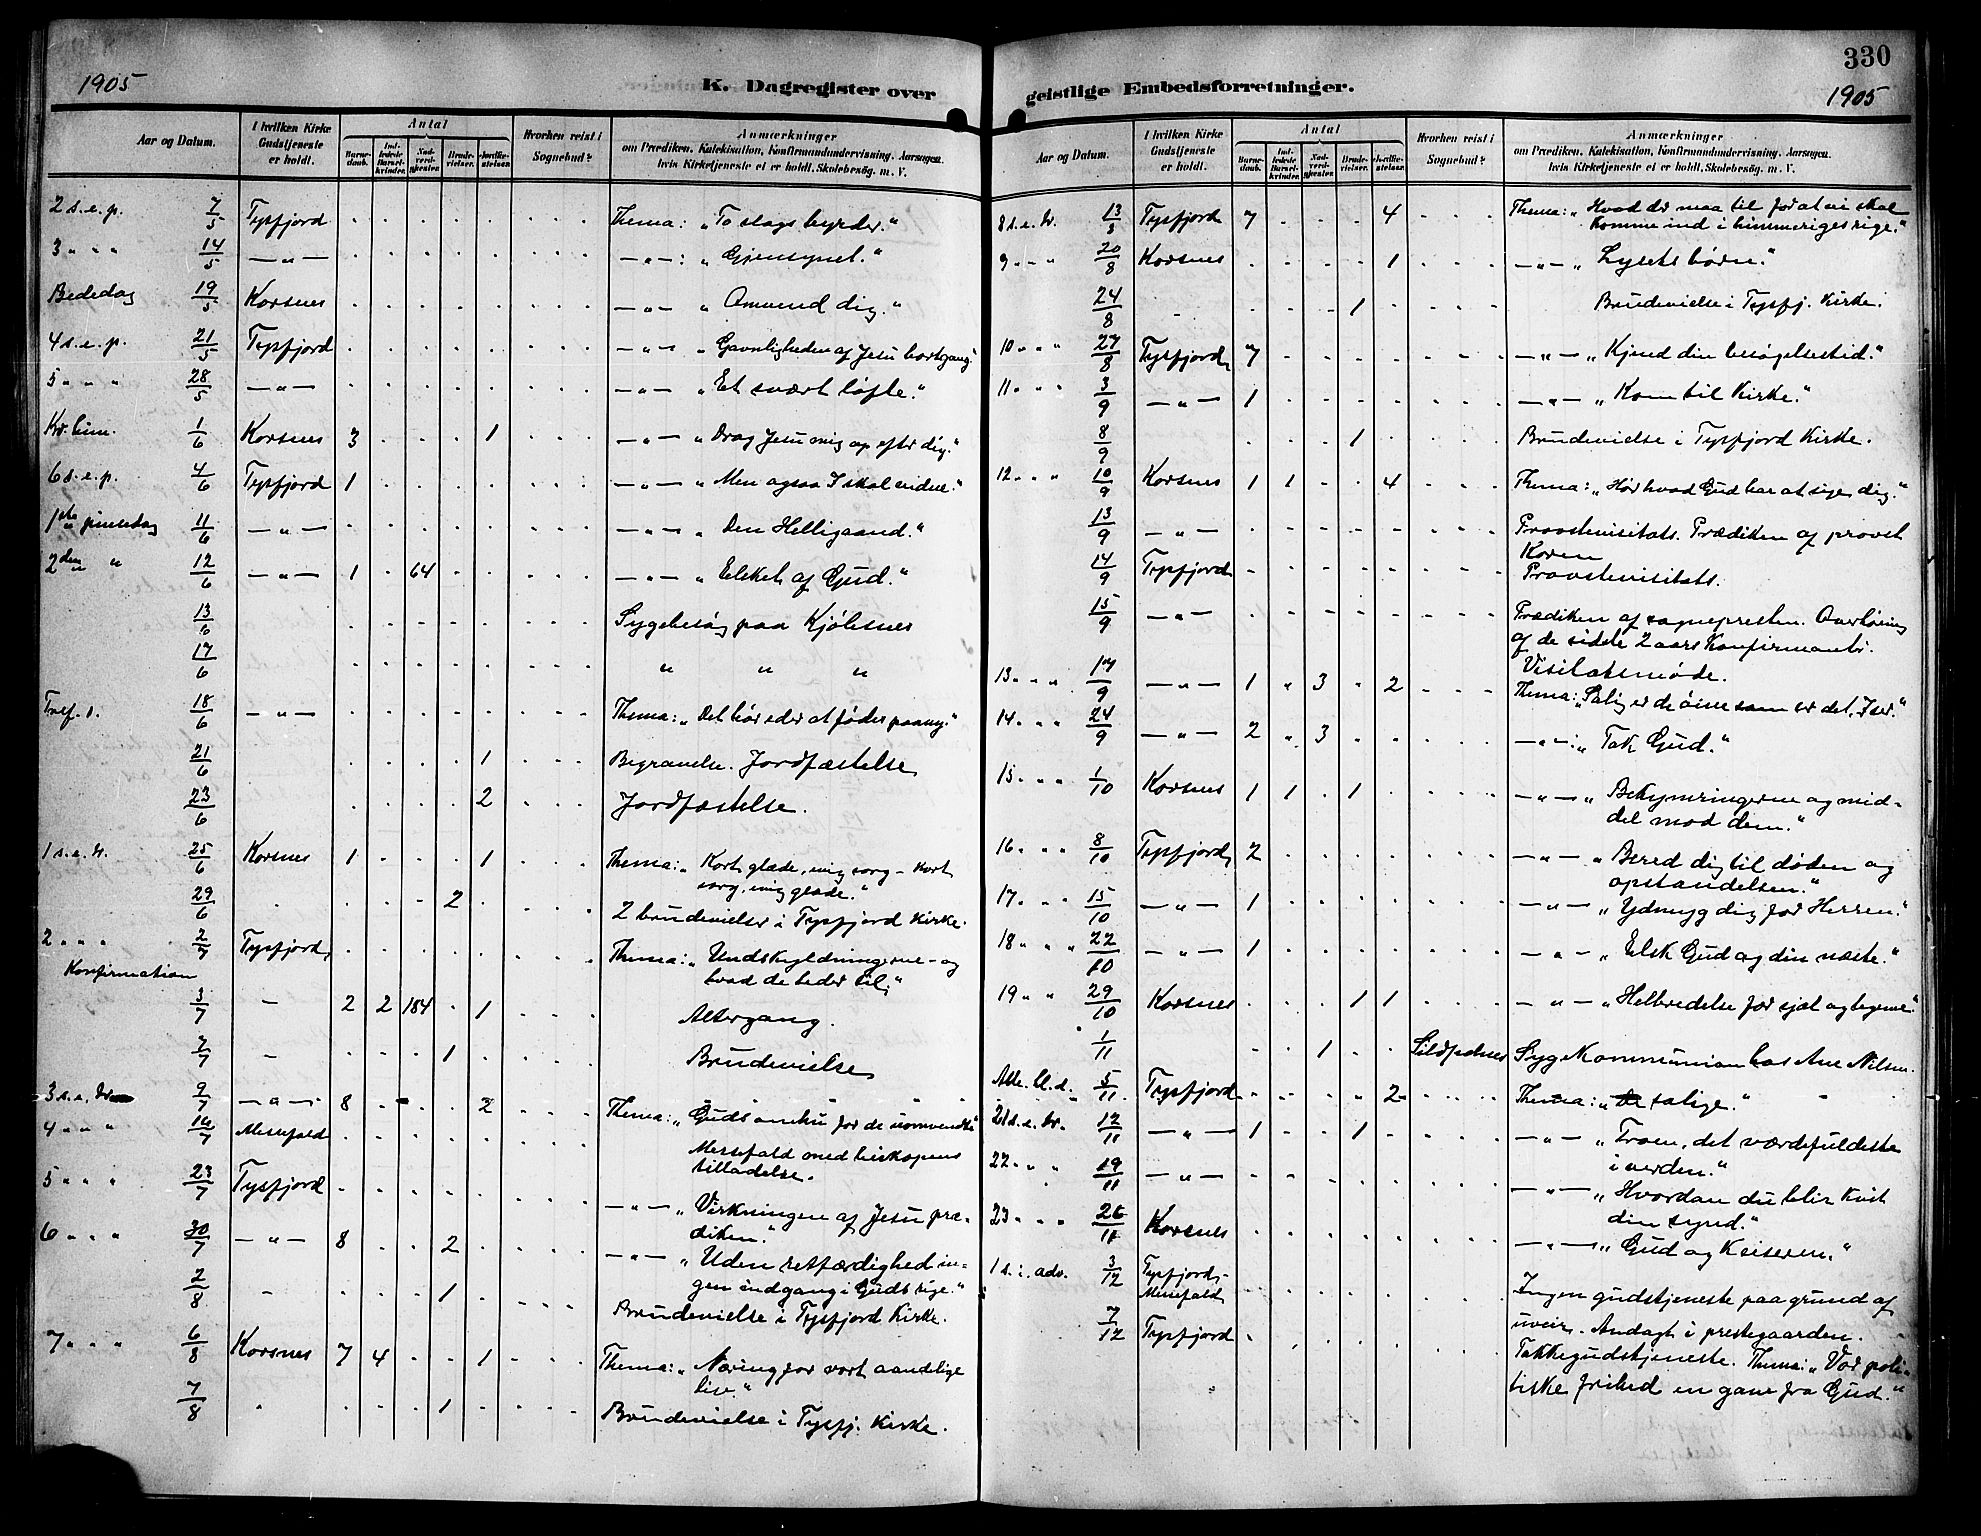 330
1905
K. Dagregister over
geistlige Embedsforretninger.
1905
Aar og Datum.
I hvilken Kirke Gudstjeneste er holdt.
Antal
Barnedaab.
Indledede Barselkvinder.
Nadverdgjester.
Brudevielser.
Jordfæstelser.
Hvorhen reist i Sognebud?
Anmærkninger
om Prædiken, Katekisation, Konfirmandundervisning, Aarsagen,
hvis Kirketjeneste ei er holdt, Skolebesøg. m. V.
2 s.e.p. 7/5 Tysfjord Thema: "To slags byrder."
3 " " 14/5 —"— —"—: "Gjensynet."
Bededag 19/5 Korsnes —"— "Omvend dig."
4 s.e.p. 21/5 Tysfjord —"— "Gavnligheden af Jesu bortgang"
5 " " 28/5 —"— —"— "Et svært løfte."
Kr. him. 1/6 Korsnes 3 1 —"— "Drag Jesu mig op efter dig."
6 s.e.p. 4/6 Tysfjord 1 —"— "Men ogsaa I skal vidne."
1ste pinsedag 11/6 —"— —"— "Den Helligaand."
2den " 12/6 —"— 1 64 —"— "Elsket af Gud."
13/6 Sygebesøg paa Kjøbsnes
17/6 " " "
Tref. s. 18/6 —"— Thema: "Det bør eder at fødes paany."
21/6 1 Begravelse. Jordfæstelse
23/6 2 Jordfæstelse.
1 s.e.tr. 25/6 Korsnes 1 1 Thema: "Kort glæde, evig sorg – Kort
sorg, evig glæde."
29/6 2 2 brudevielser i Tysfjord Kirke.
2 " " 2/7 Tysfjord Thema: "Undskyldningerne – og
hvad de leder til."
Konfirmation
3/7 — 2 2 184 1 Altergang.
7/7 1 Brudevielse
3 s.e. tr 9/7 —"— 8 2 Thema: "Guds omhu for de uomvendte"
4 " " 16/7 Messefald Messefald med biskopens
tilladelse.
5 " " 23/7 Tysfjord —"— "Virkningen af Jesu præ-
diken."
6 " " 30/7 —"— 8 2 —"— "Uden retfærdighed in-
gen indgang i Guds rige."
2/8 1 Brudevielse i Tysfjord Kirke.
7 " " 6/8 Korsnes 7 4 1 Thema: "Næring for vort aandelige
liv."
7/8 1 Brudevielse i Tysfj. Kirke.
Aar og Datum.
I hvilken Kirke Gudstjeneste er holdt.
Antal
Barnedaab.
Indledede Barselkvinder.
Nadverdgjester.
Brudevielser.
Jordfæstelser.
Hvorhen reist i Sognebud?
Anmærkninger
om Prædiken, Katekisation, Konfirmandundervisning, Aarsagen,
hvis Kirketjeneste ei er holdt, Skolebesøg. m. V.
8 s.e. tr. 13/8 Tysfjord 7 4 Thema: "Hvad der maa til for at vi skal
komme ind i himmeriges rige."
9 " " 20/8 Korsnes 1 —"— "Lysets børn."
24/8 1 Brudevielse i Tysfj. Kirke.
10 " " 27/8 Tysfjord 7 —"— "Kjend din besøgelsestid."
11 " " 3/9 —"— 1 —"— "Kom til Kirke."
8/9 1 Brudevielse i Tysfjord Kirke.
12 " " 10/9 Korsnes 1 1 4 Thema: "Hør hvad Gud har at sige dig."
13/9 —"— Provstevisitats. Prædiken af provst
Koren
14/9 Tysfjord Provstevisitats.
15/9 —"— Prædiken af sognepresten. Overhøring
af de sidste 2 aars Konfirmanter.
Visitatsmøde.
13 " " 17/9 —"— 1 " 3 " 2 Thema: "Salig er de øine som ser det, I ser."
14 " " 24/9 —"— 2 " 3 —"—: "Tak Gud."
15 " " 1/10 Korsnes 1 1 1 —"— "Bekymringerne og mid-
del mod dem."
16 " " 8/10 Tysfjord 2 —"— "Bered dig til døden og
opstandelsen."
17 " " 15/10 —"— 1 —"— "Ydmyg dig for Herren."
18 " " 22/10 —"— 1 —"— "Elsk Gud og din næste."
19 " " 29/10 Korsnes 1 1 —"— "Helbredelse for sjæl og legeme."
1/11 1 Syg Kommunion hos Ane Nilsen.
Alle. hl. d. 5/11 Tysfjord 2 Thema: "De salige."
21 s.e. tr. 12/11 —"— 1 1 —"— "Troen, det værdefuldeste
i verden."
22 " " 19/11 —"— —"— "Hvordan du blir kvit
din synd."
23 " " 26/11 Korsnes —"— "Gud og Keiseren."
1 s. i. adv. 3/12 Tysfjord,
Messefald Ingen gudstjeneste paa grund af
uveir. Andagt i prestegaarden.
7/12 Tysfjord Takkegudstjeneste. Thema: "Vor poli-
tiske frihed en gave fra Gud."